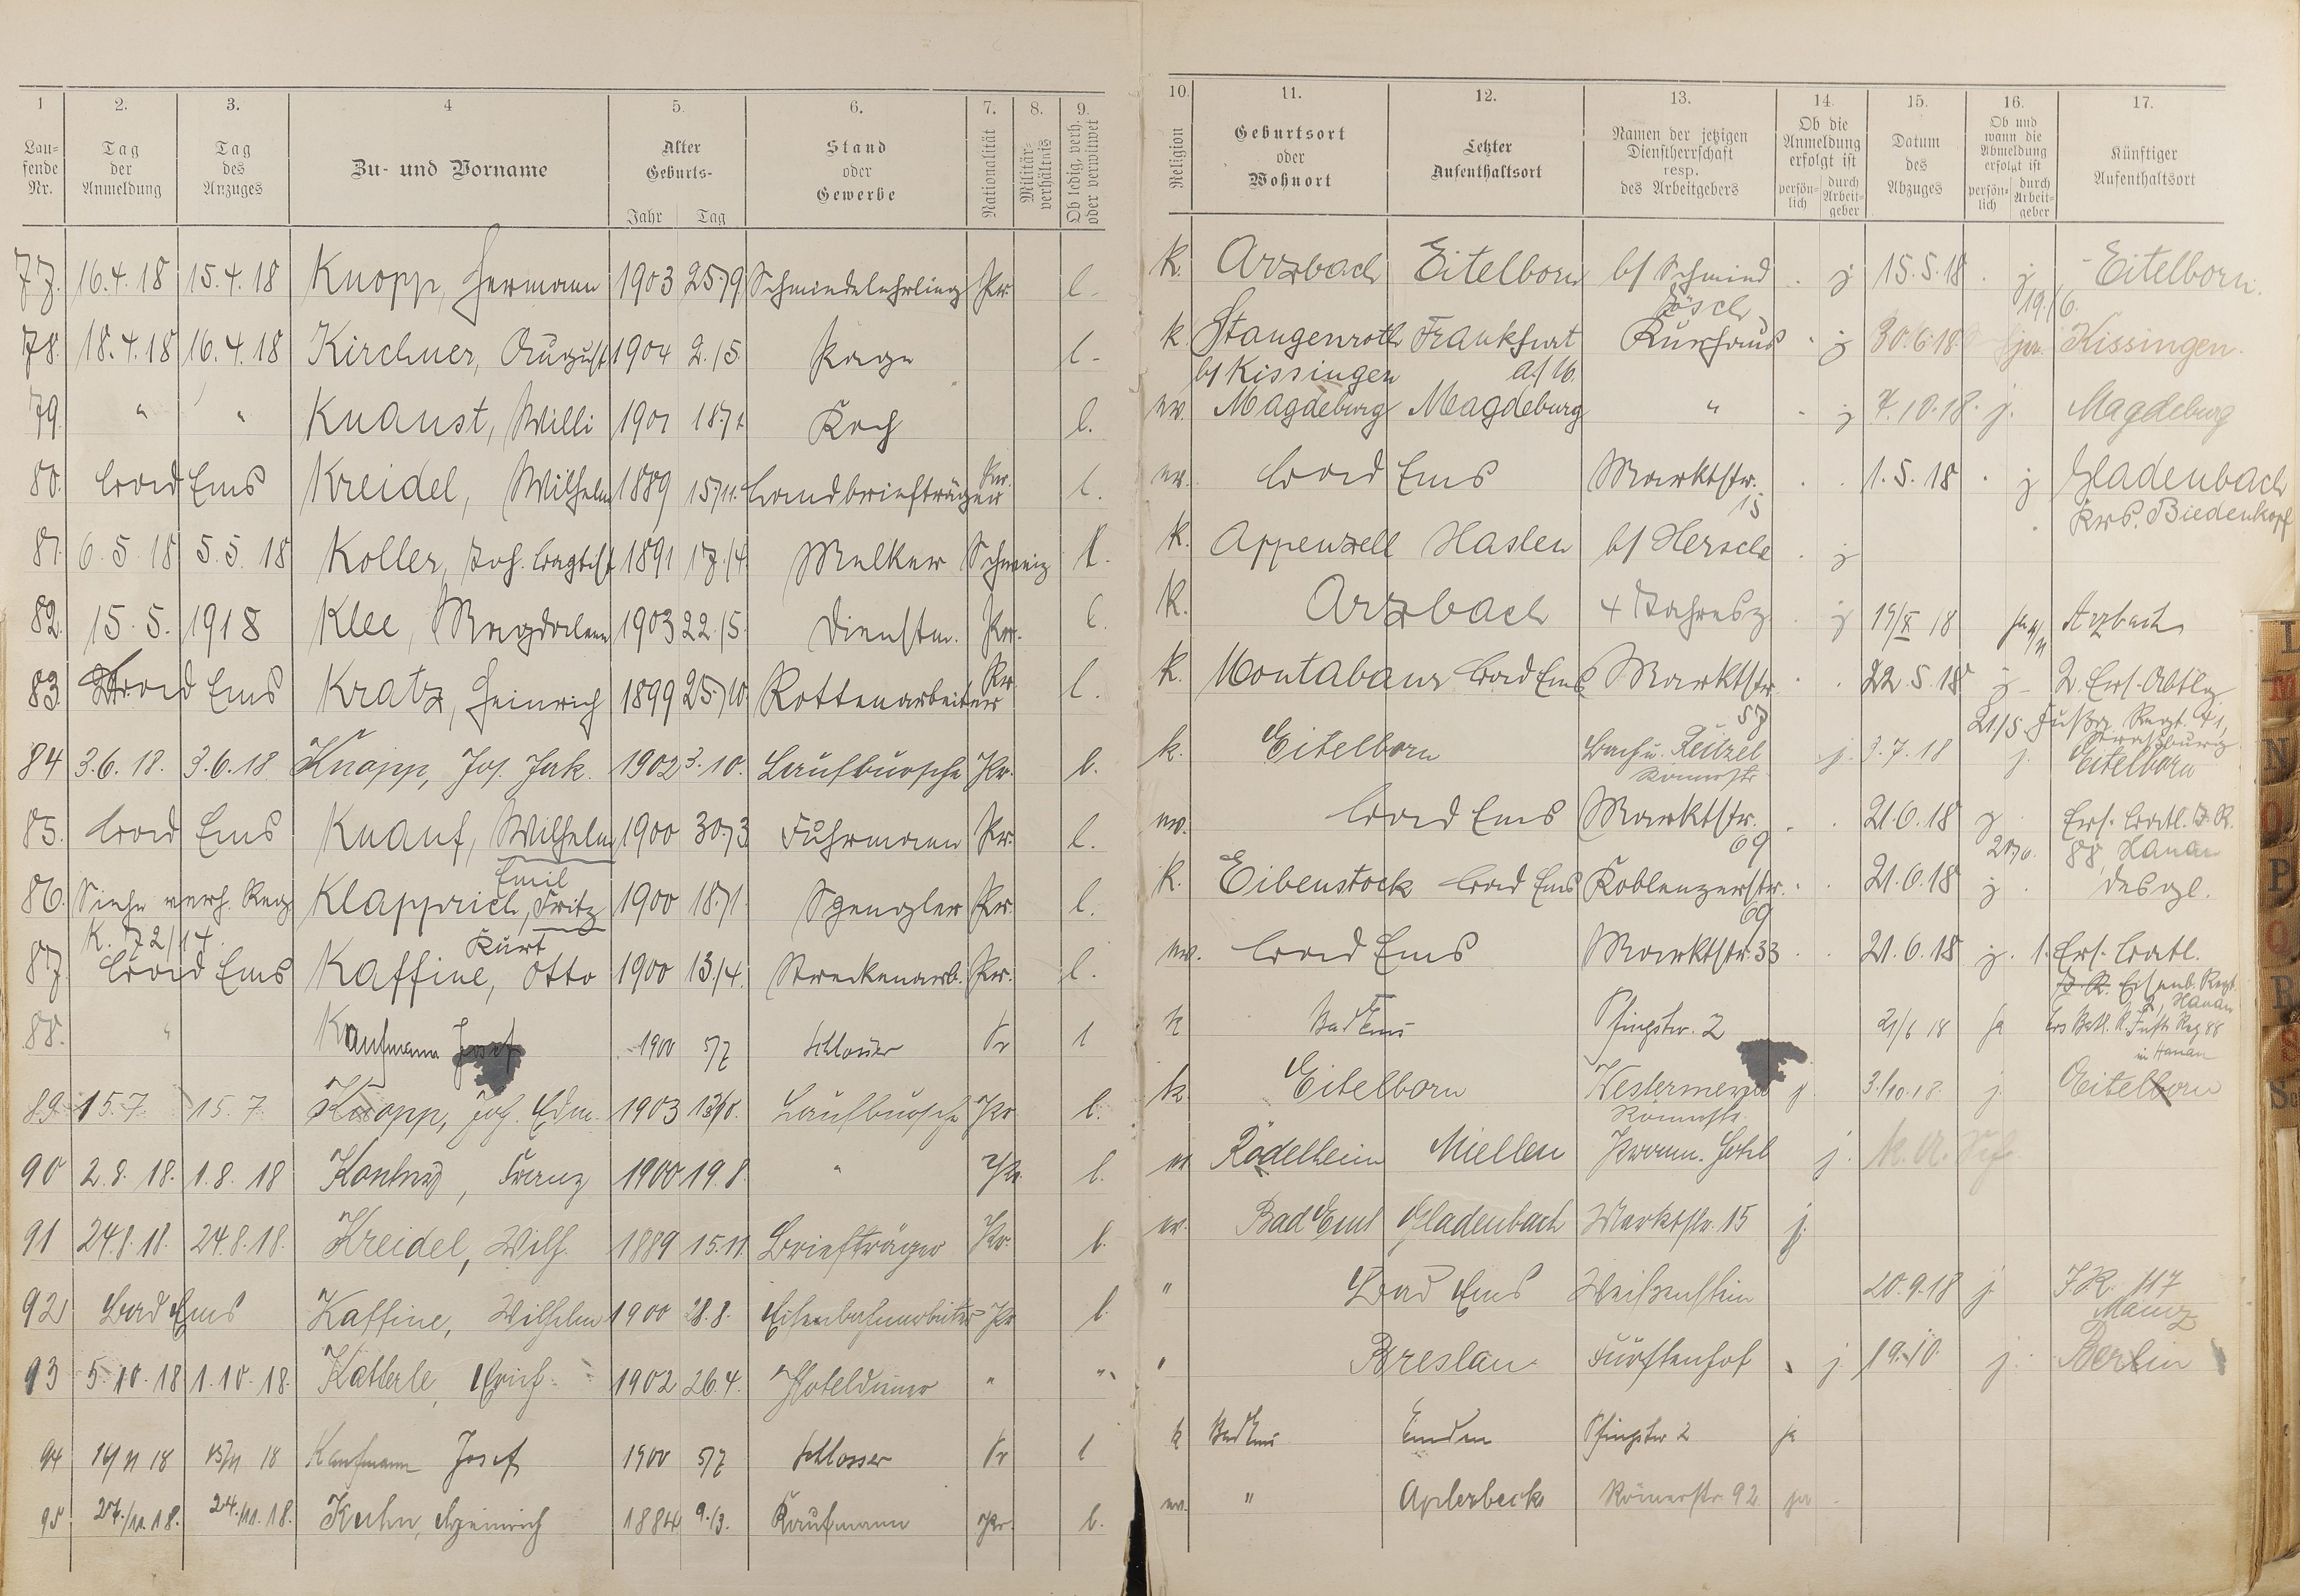 1 2. 3. 4 5. 6. 7. 8. 9.
Lau-
fende
Nr.
Tag
der
Anmeldung
Tag
des
Anzuges
Zu- und Vorname
Alter
Geburts-
Jahr Tag
Stand
oder
Gewerbe
Nationalität
Militär-
verhältnis
Ob ledig, verh.
oder verwitwet
10. 11. 12. 13. 14. 15. 16. 17.
Religion
Geburtsort
oder
Wohnort
Letzter
Aufenthaltsort
Namen der jetzigen
Dienstherrschaft
resp.
des Arbeitgebers
Ob die
Anmeldung
erfolgt ist
persön-
lich
durch
Arbeit-
geber
Datum
des
Abzuges
Ob und
wann die
Abmeldung
erfolgt ist
persön-
lich
durch
Arbeit-
geber
Künftiger
Aufenthaltsort
77. 16.4.18 15.4.18 Knopp, Hermann 1903 25/9 Schmiedelehrling Pr. l. k. Arzbach Eitelborn b/ Schmied Lösch j 15.5.18 j Eitelborn.
78. 18.4.18 16.4.18 Kirchner, August 1904 2./5. Page l. k. Stangenroth b/ Kissingen Frankfurt a/M. Kurhaus j 30.6.18 19./6. Kissingen.
79. " " Knaust, Willi 1901 Koch l. ev. Magdeburg Magdeburg " j 7.10.18. j. Magdeburg
80. Bad Ems Kreidel, Wilhelm 1889 15/11. Landbriefträger Pr. l. ev. Bad Ems Marktstr. 15 1.5.18 j Gladenbach
Krs. Biedenkopf
81. 6.5.18 5.5.18 Koller, Joh. Baptist 1891 17./4. Melker Schweiz l. k. Appenzell Haslen b/ j
82. 15.5.1918 Klee, Magdalena 1903 22./5. Dienstm. Pr. l. k. Arzbach j 19/X 18 Arzbach
83. Bad Ems Kratz, Heinrich 1899 25/10. Rottenarbeiter Pr. l. k. Montabaur Bad Ems Marktstr. 57 22.5.18 j 21/5. 2. Ers. Abtlg.
84 3.6.18. 3.6.18 Knopp, Jos. Jak. 1902 3.10. Laufbursche Pr. l. k. Eitelborn Bach u. Reitzel Römerstr. j. 3.7.18 j. Eitelborn
85. Bad Ems Knauf, Wilhelm Emil 1900 30/3 Fuhrmann Pr. l. ev. Bad Ems Marktstr. 69 21.6.18 j Ers. Batl. J. R.
88, Hanau
86. Siehe verh. Reg. K. 72/17. Klapprich, Fritz Kurt 1900 18/1 Spengler Pr. l. k. Eibenstock Bad Ems Koblenzerstr. 69 21.6.18 j desgl.
87. Bad Ems Kaffine, Otto 1900 13/4. Streckenarb. Pr. l. ev. Bad Ems Marktstr. 33 21.6.18 j. 1. Ers. Batl.
J. R. Eisenb. Regt.
2, Hanau
88. " Kaufmann Josef 1900 5/7 Schlosser Pr l k Bad Ems Pfingstw. 2 21/6 18 ja Ers Batl. R. Inft Reg 88
in Hanau
89. 15.7. 15.7. Knopp, Jos. Edm. 1903 Laufbursche Pr l. k. Eitelborn Westermeyer Römerstr. j 3./10.18. j. Eitelborn
90 2.8.18. 1.8.18 Franz 1900 19.8. " Pr. l. ev Rödelheim Miellen Hotel j.
91 24.8.18. 24.8.18. Kreidel, Wilh. 1889 15.11 Briefträger Pr. l. ev. Bad Ems Gladenbach Marktstr. 15 j.
92 Bad Ems Kaffine, Wilhelm 1900 28.8. Eisenbahnarbeiter Pr l. " Bad Ems Weißenstein 20.9.18 j J.R. 117
Mainz
93 5.10.18 1.10.18. Katterle, Erich 1902 26.4. Hoteldiener " " " Breslau Fürstenhof j. 19.10. j. Berlin
94 16/11 18 15/11 18 Kaufmann Josef 1900 5/7 Schlosser Pr l k Bad Ems Emden Pfingstw 2 ja
95 27./11.18. 24./11.18. Kuhn, Heinrich 1884 9./3. Kaufmann Pr. l. ev. " Aplerbeck Römerstr. 92 ja
L
M
N
O
P
Q
R
S